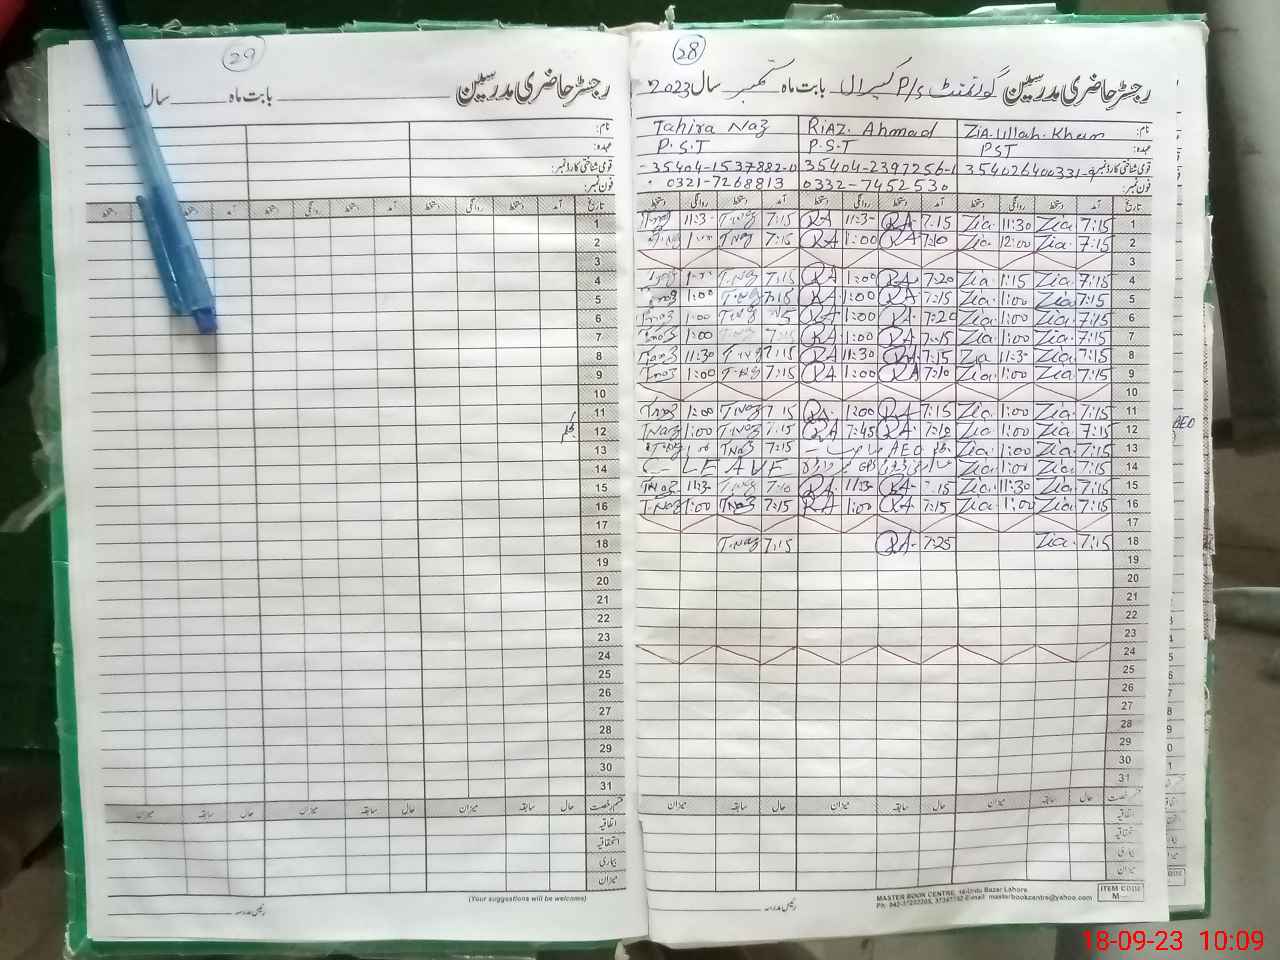 29
رجسٹر حاضری مدرسین ــــــ بابت ماہ ــــــ سال
نام:
عہدہ:
قومی شناختی کارڈ نمبر:
فون نمبر:
تاریخ آمد دستخط روانگی دستخط آمد دستخط روانگی دستخط آمد دستخط روانگی دستخط
1
2
3
4
5
6
7
8
9
10
11
12
13
14
15
16
17
18
19
20
21
22
23
24
25
26
27
28
29
30
31
قسم رخصت حال سابقہ میزان حال سابقہ میزان حال سابقہ میزان
اتفاقیہ
استحقاقیہ
بیماری
میزان
(Your suggestions will be welcome)
رئیس مدرسہ
28
رجسٹر حاضری مدرسین گورنمنٹ P/S بابت ماہ ستمبر سال 2023
نام: Zia.Ullah.Khan RIAZ. Ahmad Tahira Naz
عہدہ: PST P.S.T P.S.T
قومی شناختی کارڈ نمبر: 354026400331-9 35404-2397256-1 35404-1537882-0
فون نمبر: 0332-7452530 0321-7268813
تاریخ آمد دستخط روانگی دستخط آمد دستخط روانگی دستخط آمد دستخط روانگی دستخط
1 7:15 Zia 11:30 Zia 7:15 RA 11:3- RA 7:15 T.Naz 11:3- Tnaz
2 7:15 Zia 12:00 Zia 7:10 RA 1:00 RA 7:15 TNaz
3
4 7:15 Zia 1:15 Zia 7:20 RA 1:00 RA 7:15 T.Naz
5 7:15 Zia 1:00 Zia 7:15 RA 1:00 RA 7:15 T.Naz 1:00 Tnaz
6 7:15 Zia 1:00 Zia 7:20 RA 1:00 RA T.Naz 1:00 Tnaz
7 7:15 Zia 1:00 Zia 7:15 RA 1:00 RA 1:00 Tnaz
8 7:15 Zia 11:3- Zia 7:15 RA 11:30 RA 7:15 T.Naz 11:30 Tnaz
9 7:15 Zia 1:00 Zia 7:10 RA 1:00 RA 7:15 T.Naz 1:00 Tnaz
10
11 7:15 Zia 1:00 Zia 7:15 RA 1:00 RA 7:15 TNaz 1:00 Tnaz
12 7:15 Zia 1:00 Zia 7:10 RA 7:45 RA 7:15 T.Naz 1:00 TNaz
13 7:15 Zia 1:00 Zia AEO 7:15 TNaz
14 7:15 Zia 1:00 Zia GPS LEAVE
15 7:15 Zia 11:30 Zia 7:15 RA 11:3- RA TNaz 11:3- TNaz
16 7:15 Zia 1:00 Zia 7:15 RA 1:00 RA 7:15 TNaz 1:00 T.Naz
17
18 7:15 Zia 7:25 RA 7:15 T.Naz
19
20
21
22
23
24
25
26
27
28
29
30
31
قسم رخصت حال سابقہ میزان حال سابقہ میزان حال سابقہ میزان
اتفاقیہ
استحقاقیہ
بیماری
میزان
MASTER BOOK CENTRE, Urdu Bazar Lahore
E-mail: masterbookcentre@yahoo.com
ITEM CODE
M
رئیس مدرسہ
AEO
18-09-23 10:09